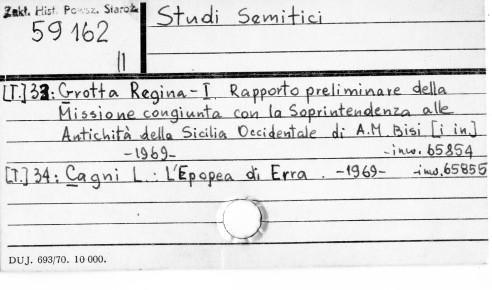 Zakł. Hist. Powsz. Staroż.
Studi Semitici
59162
II
[T.] 33: Grotta Regina - I. Rapporto preliminare della
Missione congiunta con la Soprintendenza alle
Antichità della Sicilia Occidentale di A.M. Bisi [i in.]
-1969- -inw. 65854
[T.] 34: Cagni L.: L'Epopea di Erra. -1969- -inw. 65855
DUJ. 693/70. 10 000.